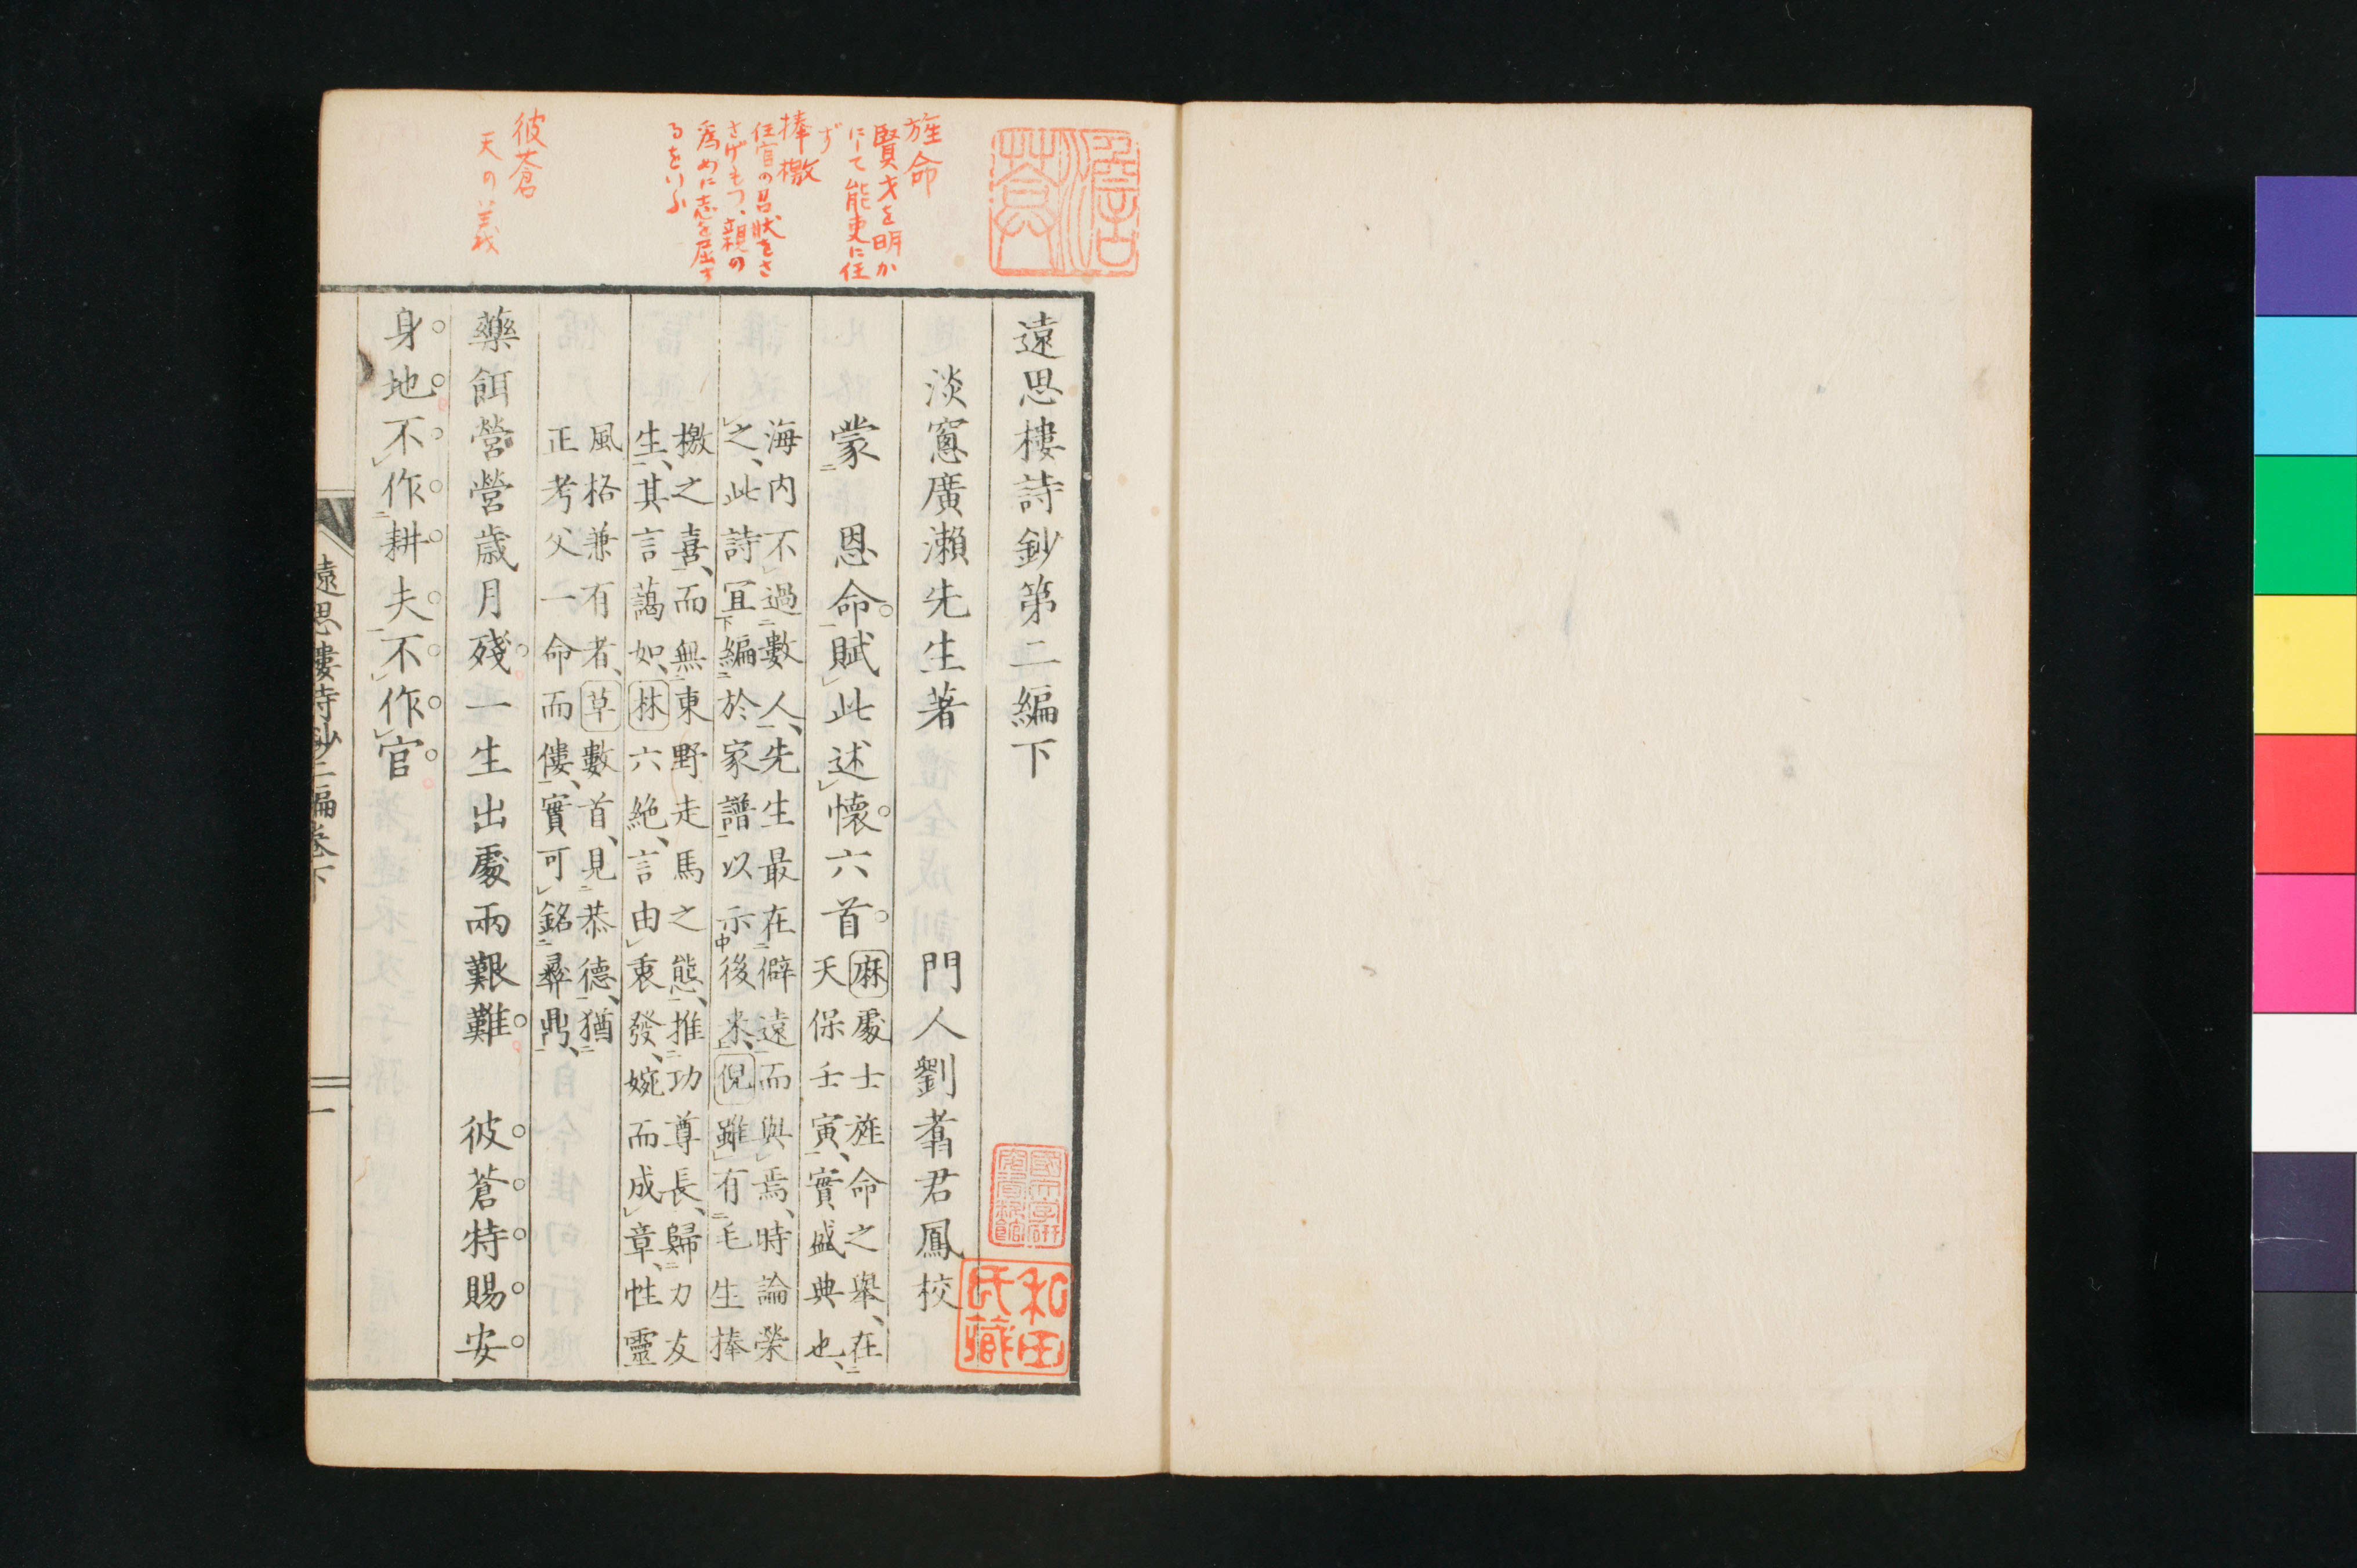 遠思樓詩鈔第二編下
淡窻廣瀨先生著　門人劉翥君鳳校
蒙　恩命賦此述懷六首
麻處士旌命之舉、在
天保壬寅、實盛典也、
海内不過數人、先生最在僻遠而與焉、時論榮
之、此詩冝編於家譜以示後来、倪雖有毛生捧
檄之喜、而無東野走馬之態、推功尊長、歸力友
生、其言藹如、林六絶、言由衷發、婉而成章、性靈
風格兼有者、草數首、見恭德、猶
正考父一命而僂、實可銘彝鼎、
藥餌營營歲月殘一生出處兩艱難　彼蒼特賜安
身地不作耕夫不作官
遠思樓詩鈔二編卷下
一
旌命
賢才を明か
にして能吏に任
ず
捧檄
任官の召状をさ
さげもつ、親の
為めに志を屈す
るをいふ
彼蒼
天の義
和田
氏藏